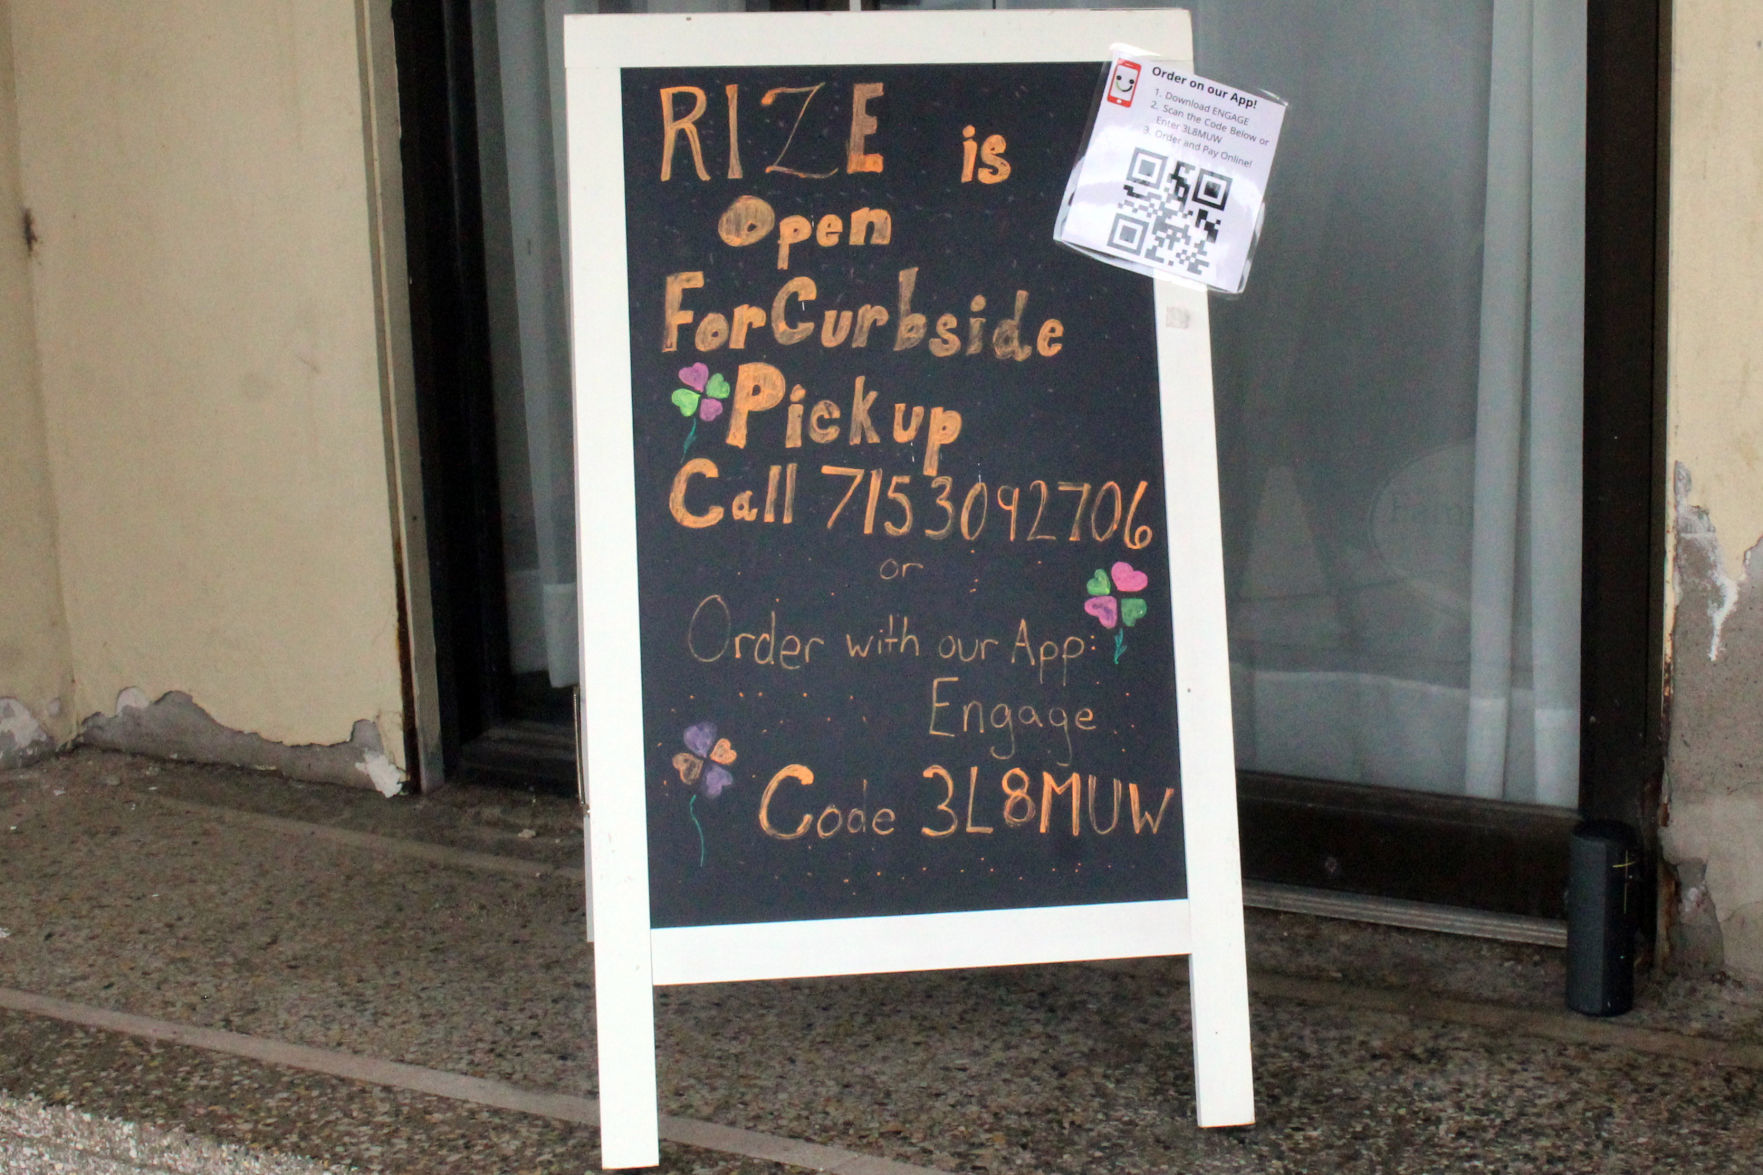 RIZE is
Open
For Curbside
Pickup
Call 7153092706
or
Order with our App:
Engage
Code 3L8MUW
Order on our App!
1. Download ENGAGE
2. Scan the Code Below or
Enter 3L8MUW
3. Order and Pay Online!